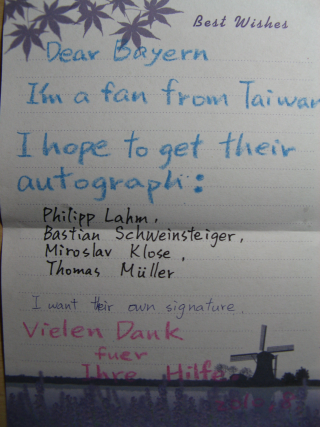 Best Wishes
Dear Bayern
I'm a fan from Taiwan
I hope to get their
autograph:
Philipp Lahm,
Bastian Schweinsteiger,
Miroslav Klose,
Thomas Müller
I want their own signature.
Vielen Dank
fuer
Ihre Hilfe